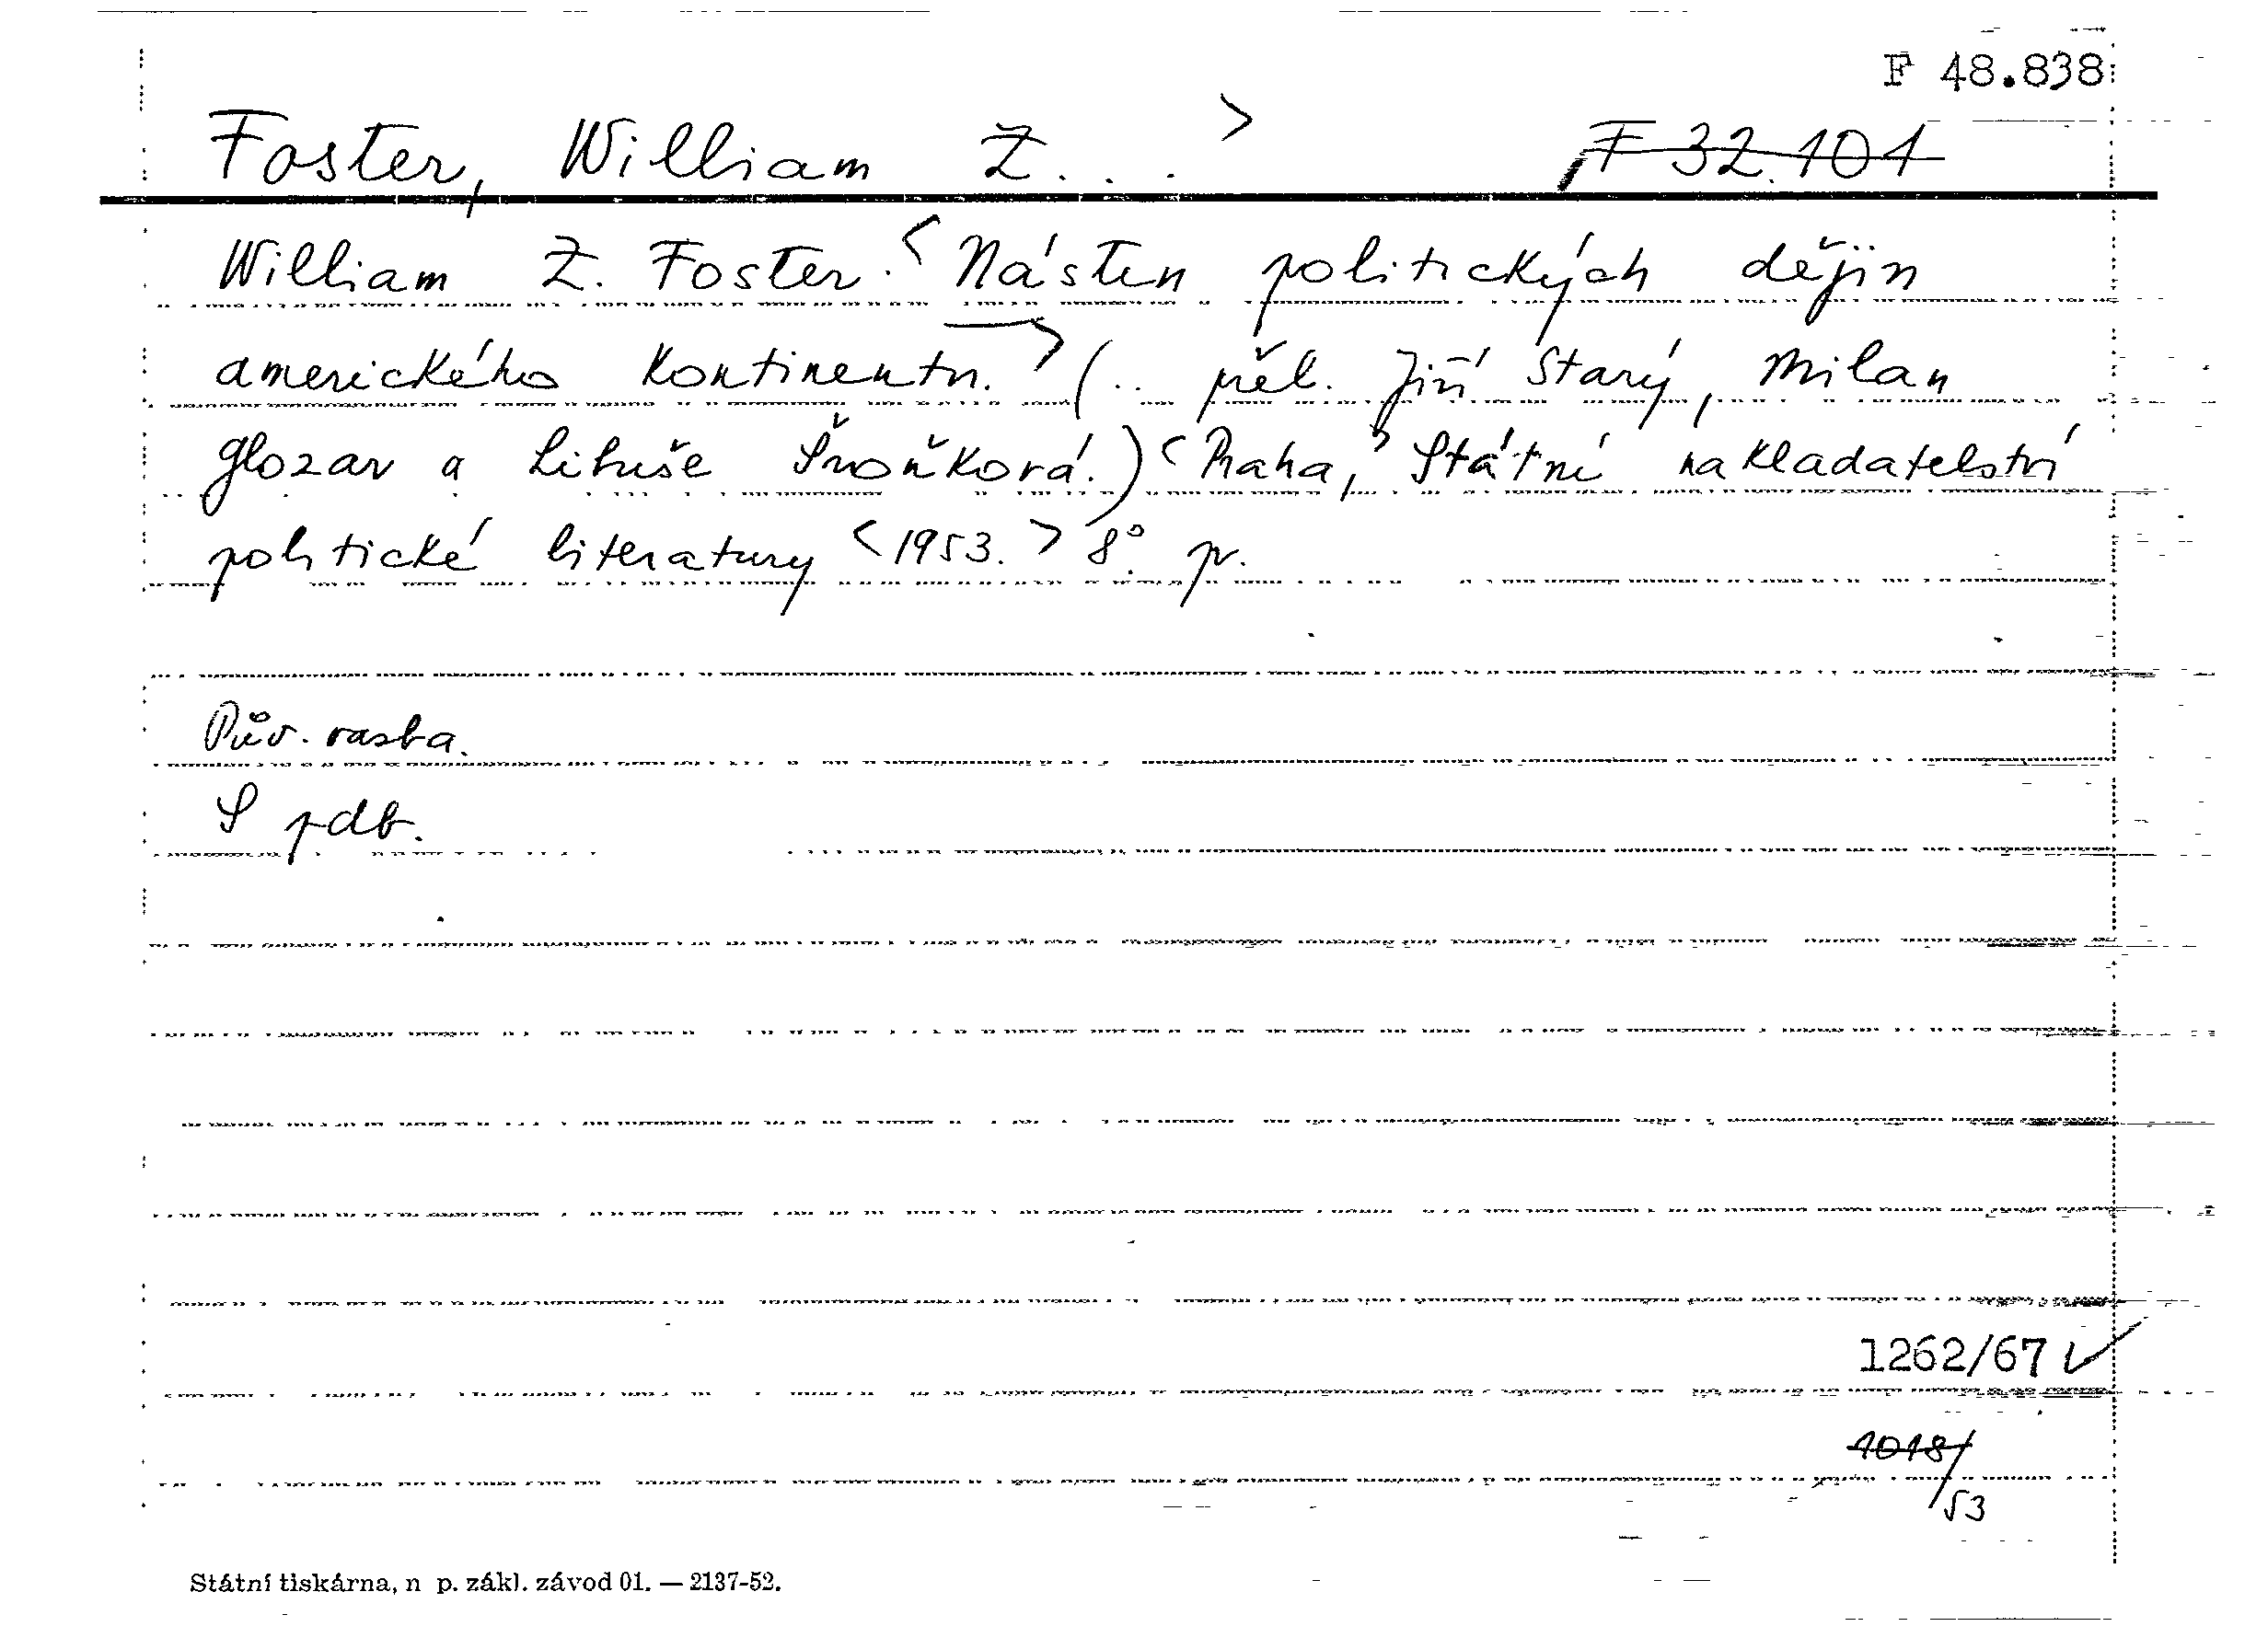 F 48.838
Foster, William Z... >
F 32.101
William Z. Foster. <Nástin politických dějin
amerického kontinentu.> (.. přel. Jiří Starý, Milan
Glozar a Libuše Šroňková.) <Praha,> Státní nakladatelství
politické literatury <1953.> 8° pr.
Pův. vazba.
S pdb.
1262/67 ✓
1018/53
Státní tiskárna, n p. zákl. závod 01. — 2137-52.